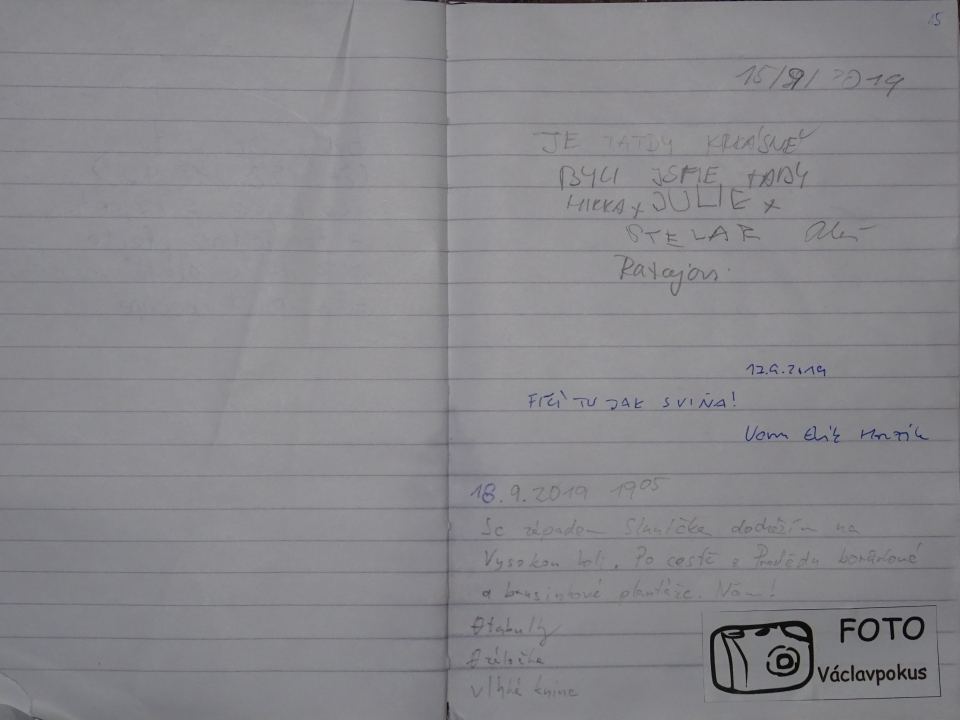 15
15/9/2019
JE TATDY KRÁSNĚ
BYLI JSME TADY
MIRKA x JULIE x
STELAR
Ratajovi
17.9.2019
FIČÍ TU JAK SVIŇA!
Erik
18.9.2019 19⁰⁵
Se západem Sluníčka docházím na
Vysokou holi. Po cestě z Pradědu borůvkové
a brusinkové plantáže. Nám!
vlhká kniha
FOTO
Václavpokus